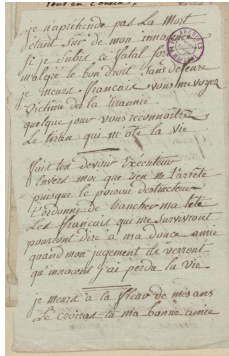 je n'aprehende pas la mort
étant sur de mon inno
si je subis ce fatal sor
malgré le bon droit sans defence
je meurs français vous me voyez
victime de la tirannie
quelque jour vous reconnaitrez
le tiran qui m'ote la vie
fait ton devoir executeur
envers moi que rien ne t'arrête
puisque le pouvoir destructeur
t'ordonne de trancher ma tête
Les français qui me survivront
pourront dire à ma douce amie
quand mon jugement ils verront
qu'innocent j'ai perdu la vie
je meurs à la fleur de mes ans
Le croiras tu ma bonne amie